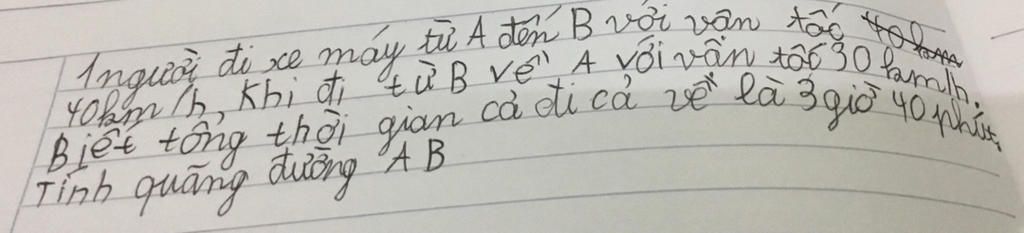 1 người đi xe máy từ A đến B với vân tốc
40km/h, khi đi từ B về A với vân tốc 30 km/h.
Biết tông thời gian cả đi cả về là 3 giờ 40 phút,
Tính quãng đường AB